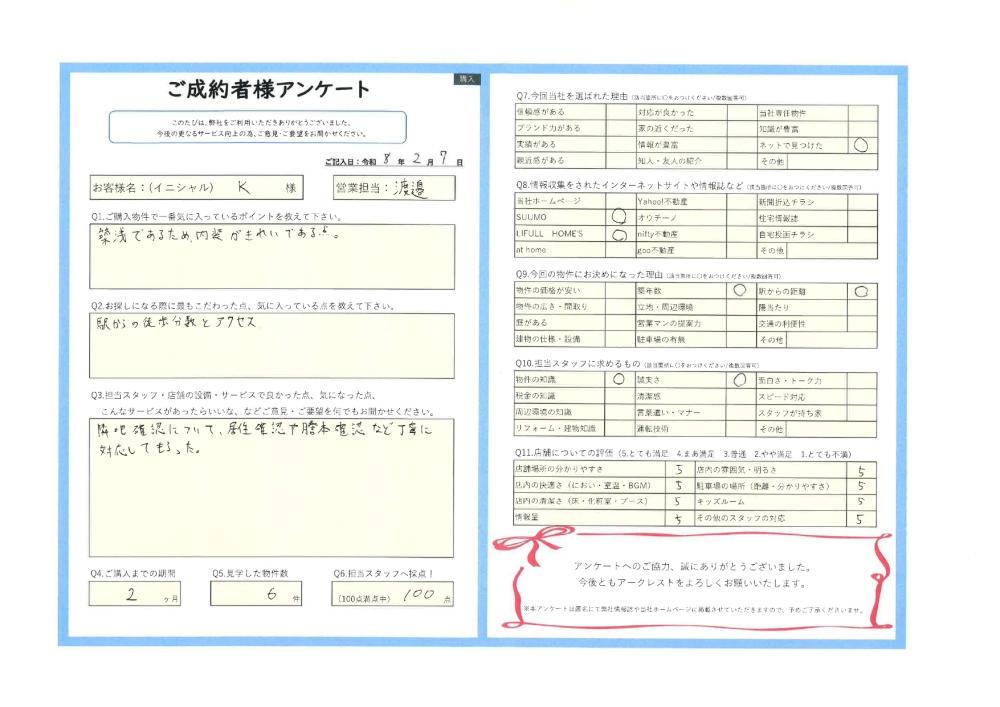 購入
ご成約者様アンケート
このたびは、弊社をご利用いただきありがとうございました。
今後の更なるサービス向上の為、ご意見・ご要望をお聞かせください。
ご記入日：令和 8 年 2 月 7 日
お客様名：(イニシャル) K 様
営業担当：渡邉
Q1.ご購入物件で一番気に入っているポイントを教えて下さい。
築浅であるため、内装がきれいである点。
Q2.お探しになる際に最もこだわった点、気に入っている点を教えて下さい。
駅からの徒歩分数とアクセス
Q3.担当スタッフ・店舗の設備・サービスで良かった点、気になった点、
こんなサービスがあったらいいな、などご意見・ご要望を何でもお聞かせください。
隣地確認について、居住確認や謄本確認など丁寧に
対応してもらった。
Q4.ご購入までの期間
2 ヶ月
Q5.見学した物件数
6 件
Q6.担当スタッフへ採点！
(100点満点中) 100 点
Q7.今回当社を選ばれた理由 (該当箇所に○をおつけください/複数回答可)
信頼感がある 対応が良かった 当社専任物件
ブランド力がある 家の近くだった 知識が豊富
実績がある 情報が豊富 ネットで見つけた ○
親近感がある 知人・友人の紹介 その他
Q8.情報収集をされたインターネットサイトや情報誌など (該当箇所に○をおつけください/複数回答可)
当社ホームページ Yahoo!不動産 新聞折込チラシ
SUUMO ○ オウチーノ 住宅情報誌
LIFULL HOME'S ○ nifty不動産 自宅投函チラシ
at home goo不動産 その他
Q9.今回の物件にお決めになった理由 (該当箇所に○をおつけください/複数回答可)
物件の価格が安い 築年数 ○ 駅からの距離 ○
物件の広さ・間取り 立地・周辺環境 陽当たり
庭がある 営業マンの提案力 交通の利便性
建物の仕様・設備 駐車場の有無 その他
Q10.担当スタッフに求めるもの (該当箇所に○をおつけください/複数回答可)
物件の知識 ○ 誠実さ ○ 面白さ・トーク力
税金の知識 清潔感 スピード対応
周辺環境の知識 言葉遣い・マナー スタッフが持ち家
リフォーム・建物知識 運転技術 その他
Q11.店舗についての評価 (5.とても満足 4.まあ満足 3.普通 2.やや満足 1.とても不満)
店舗場所の分かりやすさ 5 店内の雰囲気・明るさ 5
店内の快適さ（におい・室温・BGM） 5 駐車場の場所（距離・分かりやすさ） 5
店内の清潔さ（床・化粧室・ブース） 5 キッズルーム 5
情報量 5 その他のスタッフの対応 5
アンケートへのご協力、誠にありがとうございました。
今後ともアークレストをよろしくお願いいたします。
※本アンケートは匿名にて弊社情報誌や当社ホームページに掲載させていただきますので、予めご了承くださいませ。